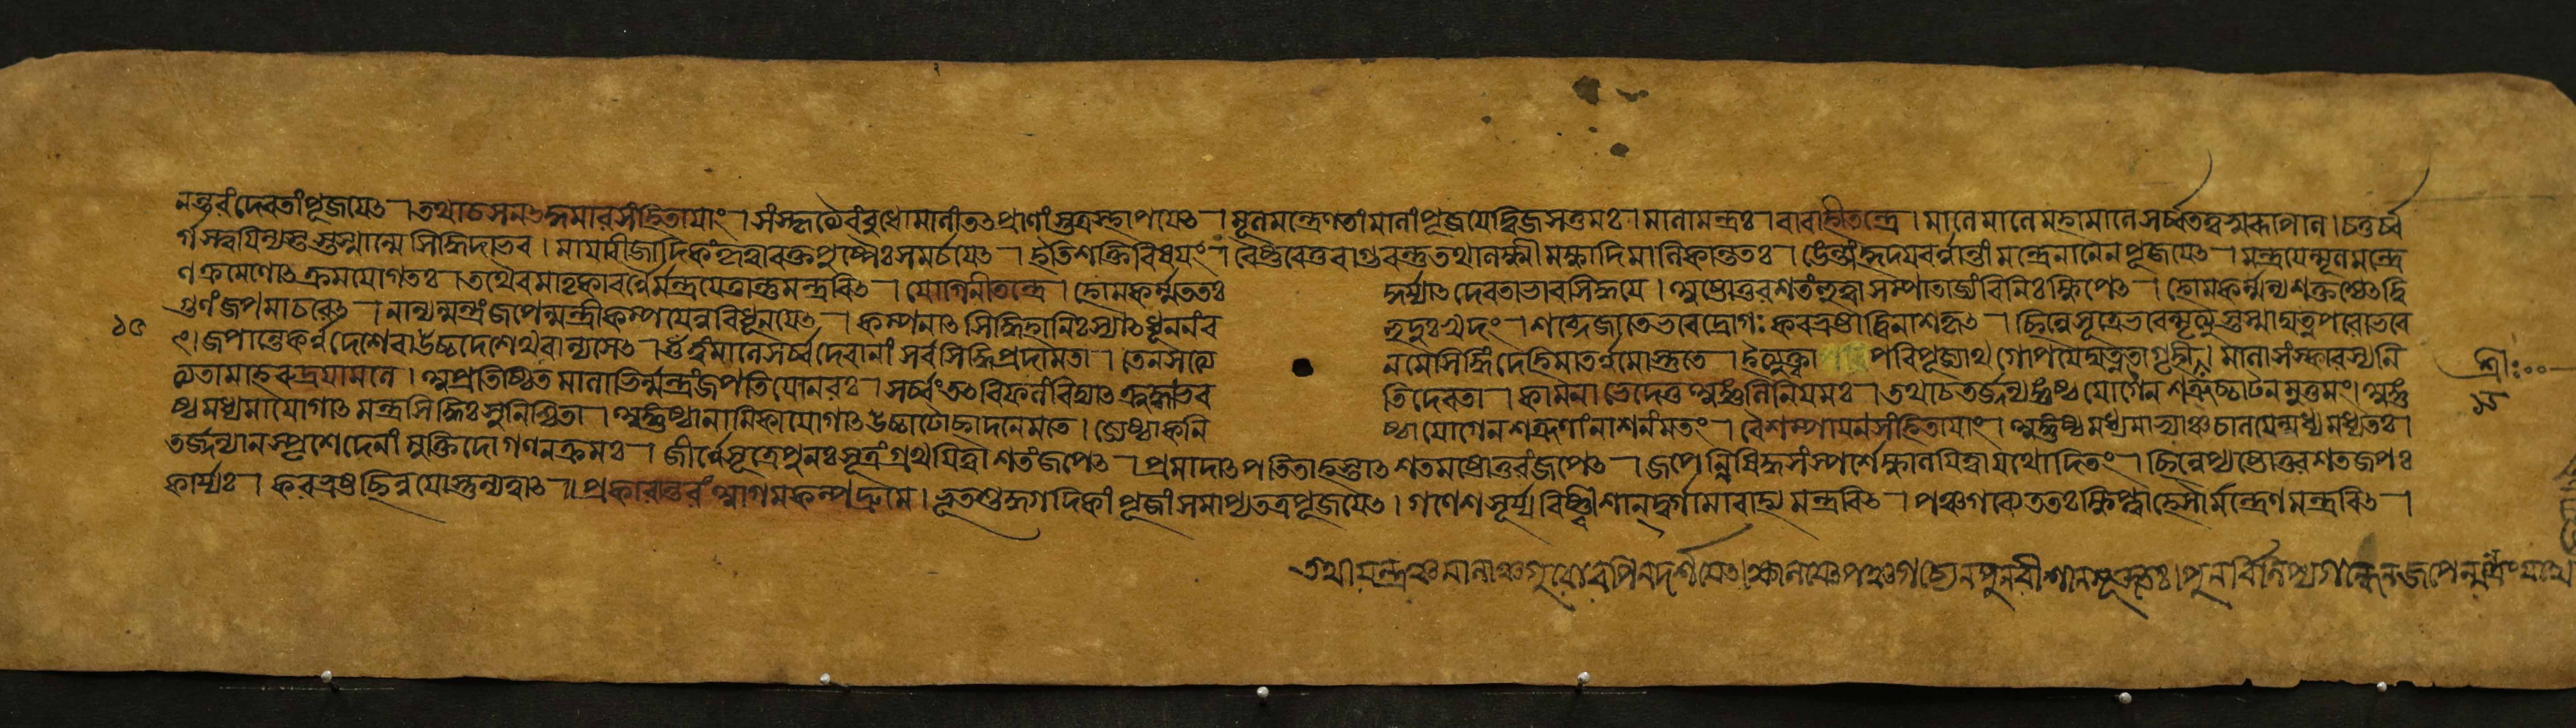 নন্তরং দেবতাং পূজয়েৎ । তথাচ সনৎকুমারসংহিতায়াং । সংস্কৃত্যৈবং বুধো মালাং তৎপ্রাণাংস্তত্র স্থাপয়েৎ । মূলমন্ত্রেণ তাং মালাং পূজয়েদ্দ্বিজসত্তমঃ । মালামন্ত্রঃ । বারাহীতন্ত্রে । মালে মালে মহামালে সর্ব্বতত্ত্ব । চতুর্ব্ব
র্গস্ত্বয়ি ন্যস্তস্তস্মান্মে সিদ্ধিদা ভব । মায়াবীজাদিকং কৃত্বা রক্তপুষ্পৈঃ সমর্চয়েৎ । ইতি শক্তিবিষয়ং । বৈষ্ণবে তু বাগ্ভবন্তু তথা লক্ষ্মীমক্ষাদিমালিকান্ততঃ । ঙেন্তাং হৃদয়বর্ণান্তাং মন্ত্রেনানেন পূজয়েৎ । মন্ত্রয়েন্মূলমন্ত্রে
ণ ক্রমেণোৎক্রমযোগতঃ । তথৈব মাতৃকাবর্ণৈর্মন্ত্রয়েত্তান্তু মন্ত্রবিৎ । যোগিনীতন্ত্রে । হোমকর্ম্ম ততঃ কুর্য্যাৎ দেবতাভাবসিদ্ধয়ে । অষ্টোত্তরশতং হুত্বা সম্পাতাজ্যং বিনিঃক্ষিপেৎ । হোমকর্ম্মন্যশক্তশ্চেৎ দ্বি
১৫ গুণং জপমাচরেৎ । নান্যমন্ত্রং জপেন্মন্ত্রী কম্পয়েন্ন বিধূনয়েৎ । কম্পনাৎ সিদ্ধিহানিঃ স্যাৎ ধূননং ব হুদুঃখদং । শব্দে জাতে ভবেদ্রোগঃ করভ্রষ্টা বিনাশকৃৎ । ছিন্নে সূত্রে ভবেন্মৃত্যুস্তস্মাদ্যত্নপরো ভবে
ৎ । জপান্তে কর্ণদেশে বা উচ্চদেশেথবা ন্যসেৎ । ওঁ ত্বং মালে সর্ব্বদেবানাং সর্বসিদ্ধিপ্রদা মতা । তেন সত্যে ন মে সিদ্ধিং দেহি মাতর্নমোস্তু তে । ইত্যুক্ত্বা পরিপূজ্যাথ গোপয়েদ্যত্নতো গৃহী । মালাসংস্কারস্য নি
ত্যতামাহ রুদ্রযামলে । অপ্রতিষ্ঠিতমালাভির্ম্মন্ত্রং জপতি যো নরঃ । সর্ব্বং তৎ বিফলং বিদ্যাৎ ক্রুদ্ধা ভব তি দেবতা । কামনাভেদে তু অঙ্গুলিনিয়মঃ । তথাচ তর্জ্জন্যঙ্গুষ্ঠযোগেন শত্রূচ্চাটনমুত্তমং । অঙ্গু
ষ্ঠমধ্যমাযোগাৎ মন্ত্রসিদ্ধিঃ সুনিশ্চিতা । অঙ্গুষ্ঠানামিকাযোগাৎ উচ্চাটোচ্ছাদনে মতে । জ্যেষ্ঠাকনি ষ্ঠাযোগেন শত্রূণাং নাশনং মতং । বৈশম্পায়নসংহিতায়াং । অঙ্গুষ্ঠমধ্যমাভ্যাঞ্চ চালয়েন্মধ্যমধ্যতঃ ।
তর্জ্জন্যা ন স্পৃশেদেনাং মুক্তিদো গণনক্রমঃ । জীর্ণে সূত্রে পুনঃ সূত্রং গ্রথয়িত্বা শতং জপেৎ । প্রমাদাৎ পতিতা হস্তাৎ শতমষ্টোত্তরং জপেৎ । জপেন্নিষিদ্ধসংস্পর্শে ক্ষালয়িত্বা যথোদিতং । ছিন্নেপ্যষ্টোত্তরশতজপঃ
কার্য্যঃ । করভ্রষ্টছিন্নয়োস্তুল্যত্বাৎ ॥ প্রকারান্তরং আগমকল্পদ্রুমে । পূজাং সমাপ্য তত্র পূজয়েৎ । গণেশসূর্য্যবিষ্ণ্বীশান্ দুর্গামাবাহ্য মন্ত্রবিৎ । পঞ্চগব্যে ততঃ ক্ষিপ্ত্বা হ্সৌর্মন্ত্রেণ মন্ত্রবিৎ ।
শ্রীঃ